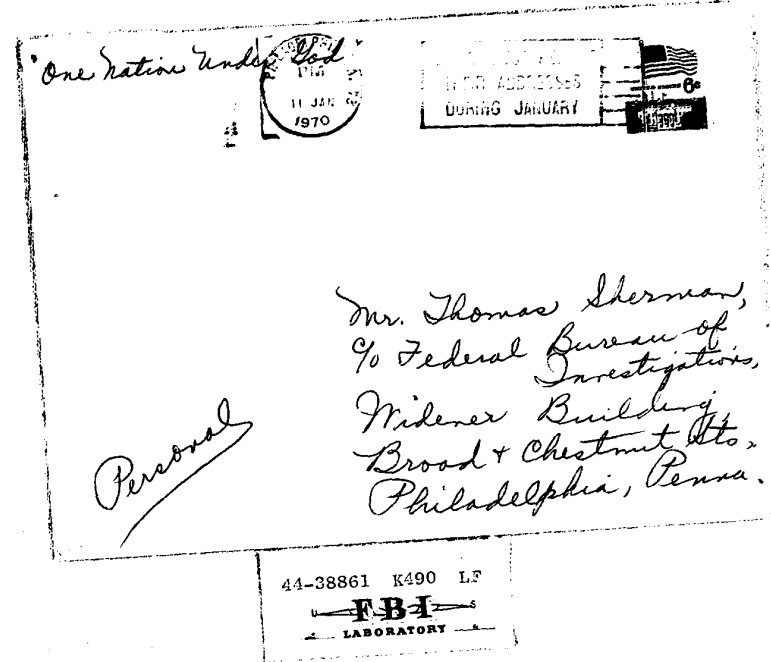 "One Nation Under God"
PHILADELPHIA
PM
11 JAN
1970
YOUR ADDRESSES
DURING JANUARY
6c
Mr. Thomas Sherman,
c/o Federal Bureau of
Investigations,
Widener Building,
Broad + Chestnut Sts.
Philadelphia, Penna.
Personal
44-38861 K490 LF
U S
FBI
LABORATORY